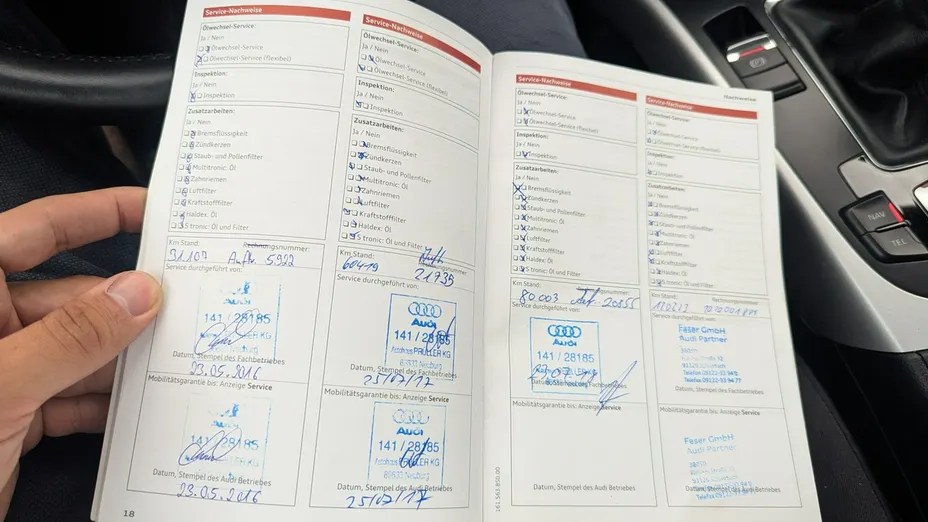 Service-Nachweise
Ölwechsel-Service:
Ja / Nein
Ölwechsel-Service
Ölwechsel-Service (flexibel)
Inspektion:
Ja / Nein
Inspektion
Zusatzarbeiten:
Ja / Nein
Bremsflüssigkeit
Zündkerzen
Staub- und Pollenfilter
Multitronic: Öl
Zahnriemen
Luftfilter
Kraftstofffilter
Haldex: Öl
S tronic: Öl und Filter
Km Stand: Rechnungsnummer:
91107 5992
Service durchgeführt von:
141 / 28185
Datum, Stempel des Fachbetriebes
23.05.2016
Mobilitätsgarantie bis: Anzeige Service
141 / 28185
Datum, Stempel des Audi Betriebes
23.05.2016
18
Service-Nachweise
Ölwechsel-Service:
Ja / Nein
Ölwechsel-Service
Ölwechsel-Service (flexibel)
Inspektion:
Ja / Nein
Inspektion
Zusatzarbeiten:
Ja / Nein
Bremsflüssigkeit
Zündkerzen
Staub- und Pollenfilter
Multitronic: Öl
Zahnriemen
Luftfilter
Kraftstofffilter
Haldex: Öl
S tronic: Öl und Filter
Km Stand:
60419 21735
Service durchgeführt von:
Audi
141 / 28185
Autohaus PRÜLLER KG
86633 Neuburg
Datum, Stempel des Fachbetriebes
25/07/17
Mobilitätsgarantie bis: Anzeige Service
Audi
141 / 28185
PRÜLLER KG
86633 Neuburg
Datum, Stempel des Audi Betriebes
25/07/17
Service-Nachweise
Ölwechsel-Service:
Ja / Nein
Ölwechsel-Service
Ölwechsel-Service (flexibel)
Inspektion:
Ja / Nein
Inspektion
Zusatzarbeiten:
Ja / Nein
Bremsflüssigkeit
Zündkerzen
Staub- und Pollenfilter
Multitronic: Öl
Zahnriemen
Luftfilter
Kraftstofffilter
Haldex: Öl
S tronic: Öl und Filter
Km Stand:
80003 20855
Service durchgeführt von:
Audi
141 / 28185
Datum, Stempel des Fachbetriebes
Mobilitätsgarantie bis: Anzeige Service
Datum, Stempel des Audi Betriebes
161.563.850.00
Nachweise
Service-Nachweise
Ölwechsel-Service:
Ja / Nein
Ölwechsel-Service
Ölwechsel-Service (flexibel)
Inspektion:
Ja / Nein
Inspektion
Zusatzarbeiten:
Ja / Nein
Bremsflüssigkeit
Zündkerzen
Staub- und Pollenfilter
Multitronic: Öl
Zahnriemen
Luftfilter
Kraftstofffilter
Haldex: Öl
S tronic: Öl und Filter
Km Stand: Rechnungsnummer:
Service durchgeführt von:
Faser GmbH
Audi Partner
Datum, Stempel des Fachbetriebes
Mobilitätsgarantie bis: Anzeige Service
Faser GmbH
Audi Partner
Datum, Stempel des Audi Betriebes
NAV
TEL